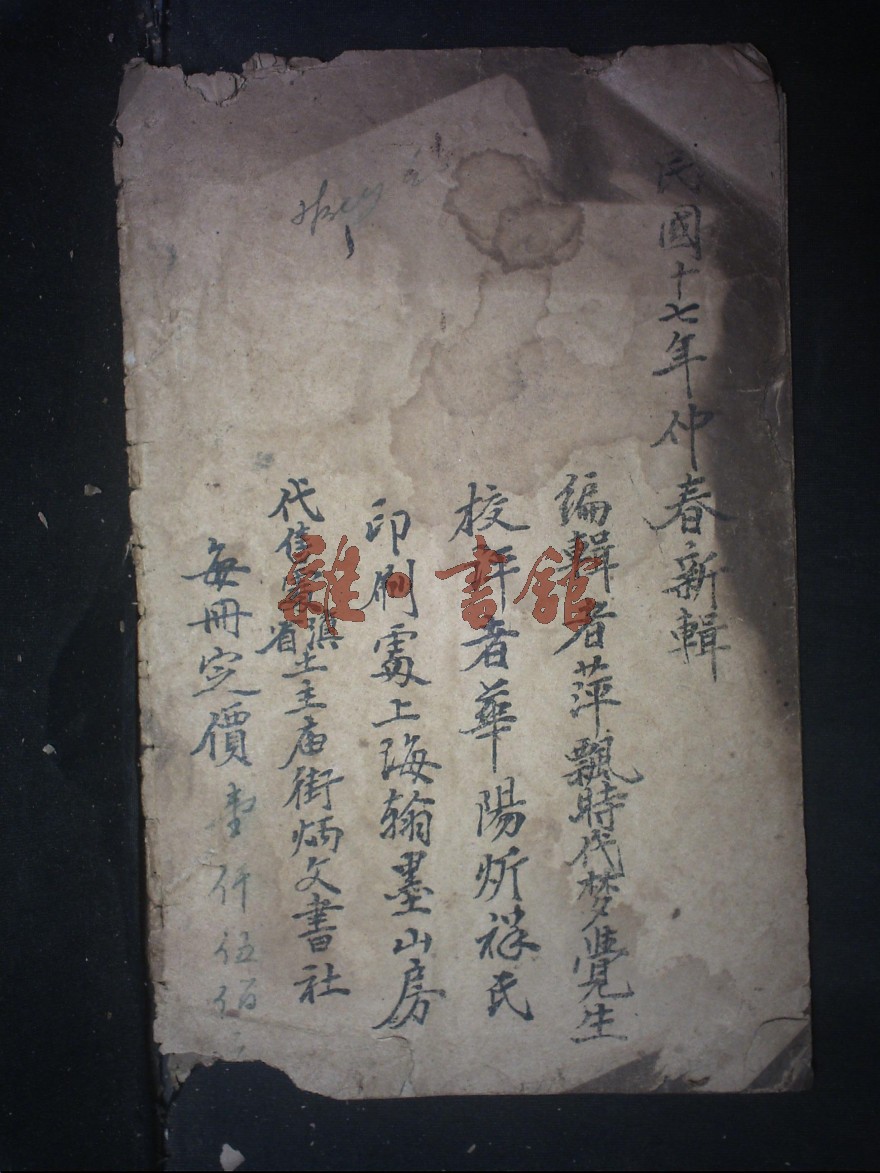 民國十七年仲春新輯
編輯者萍飄時代梦覺生
校者華陽炘祥氏
印刷處上海翰墨山房
代售處滇省土主庙街炳文書社
每冊定價壹仟伍佰
雜書館